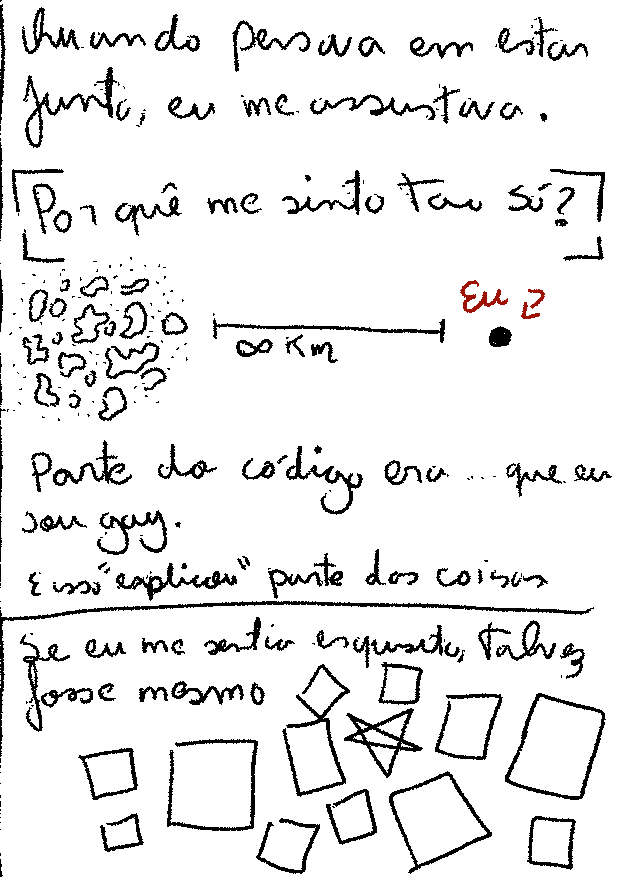 Quando pensava em estar
junto, eu me assustava.
Por quê me sinto tão só?
Eu
∞ Km
Parte do código era... que eu
sou gay.
E isso "explicou" parte das coisas
Se eu me sentia esquisito, talvez
fosse mesmo